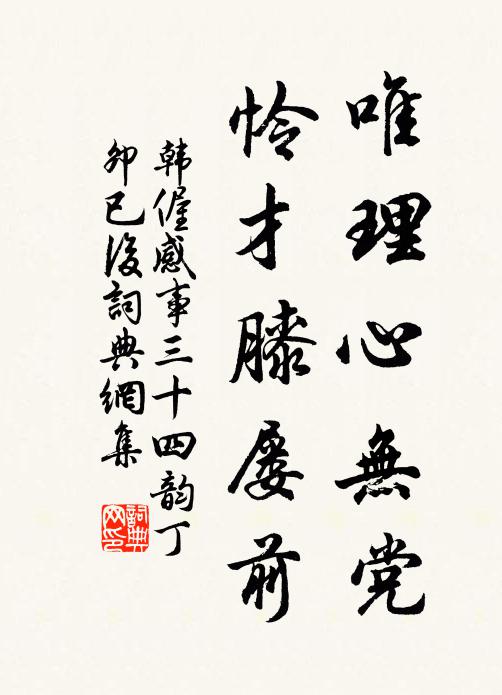 唯理心無党
怜才膝屡前
韩偓感事三十四韵丁
卯已後詞典網集
詞典
网印